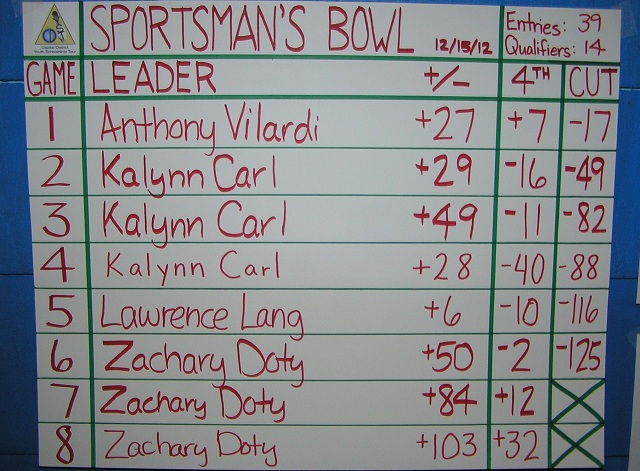 Capital District
Youth Scholarship Tour
SPORTSMAN'S BOWL 12/15/12
Entries: 39
Qualifiers: 14
GAME LEADER +/- 4TH CUT
1 Anthony Vilardi +27 +7 -17
2 Kalynn Carl +29 -16 -49
3 Kalynn Carl +49 -11 -82
4 Kalynn Carl +28 -40 -88
5 Lawrence Lang +6 -10 -116
6 Zachary Doty +50 -2 -125
7 Zachary Doty +84 +12
8 Zachary Doty +103 +32